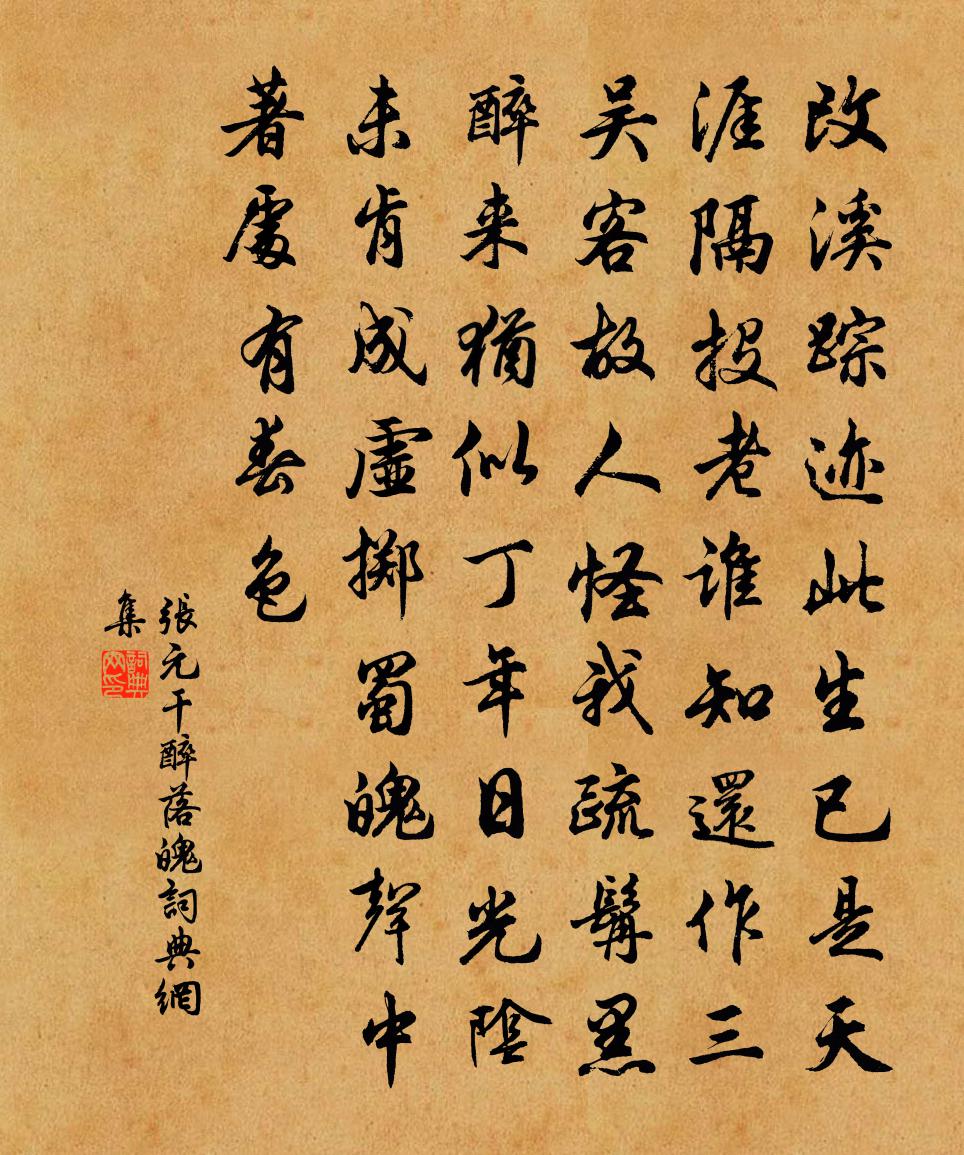 改溪踪迹此生已是天
涯隔投老谁知還作三
吴客故人怪我疏髯黑
醉来猶似丁年日光陰
未肯成虚掷蜀魄聲中
著處有春色
張元干醉落魄詞典網
集
詞典
网印